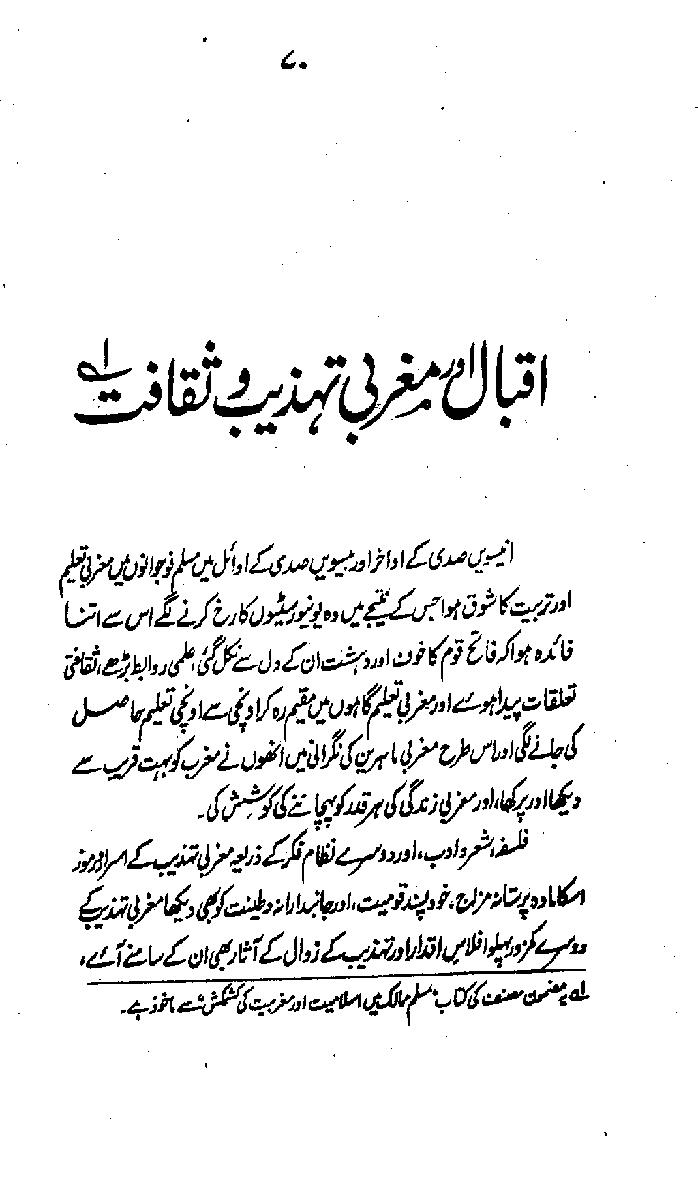 ۷۰
اقبال اور مغربی تہذیب و ثقافت لے
انیسویں صدی کے اواخر اور بیسویں صدی کے اوائل میں مسلم نوجوانوں میں مغربی تعلیم
اور تربیت کا شوق ہوا جس کے نتیجے میں وہ یونیورسٹیوں کا رخ کرنے لگے اس سے اتنا
فائدہ ہوا کہ فاتح قوم کا خون اور دہشت ان کے دل سے نکل گئی، علمی روابط بڑھے، ثقافتی
تعلقات پیدا ہوئے اور مغربی تعلیم گاہوں میں مقیم رہ کر اونچی سے اونچی تعلیم حاصل
کی جانے لگی اور اس طرح مغربی ماہرین کی نگرانی میں انھوں نے مغرب کو بہت قریب سے
دیکھا اور پرکھا، اور مغربی زندگی کی ہر قدر کو پہچاننے کی کوشش کی۔
فلسفہ، شعر و ادب، اور دوسرے نظام فکر کے ذریعہ مغربی تہذیب کے اسرار و رموز
اسکا مادہ پرستانہ مزاج، خود پسند قومیت، اور جانبدارانہ وطینت کو بھی دیکھا مغربی تہذیب کے
دوسرے کمزور پہلو افلاس اقدار اور تہذیب کے زوال کے آثار بھی ان کے سامنے آئے،
لے یہ مضمون مصنف کی کتاب "مسلم ممالک میں اسلامیت اور مغربیت کی کشمکش" سے ماخوذ ہے۔